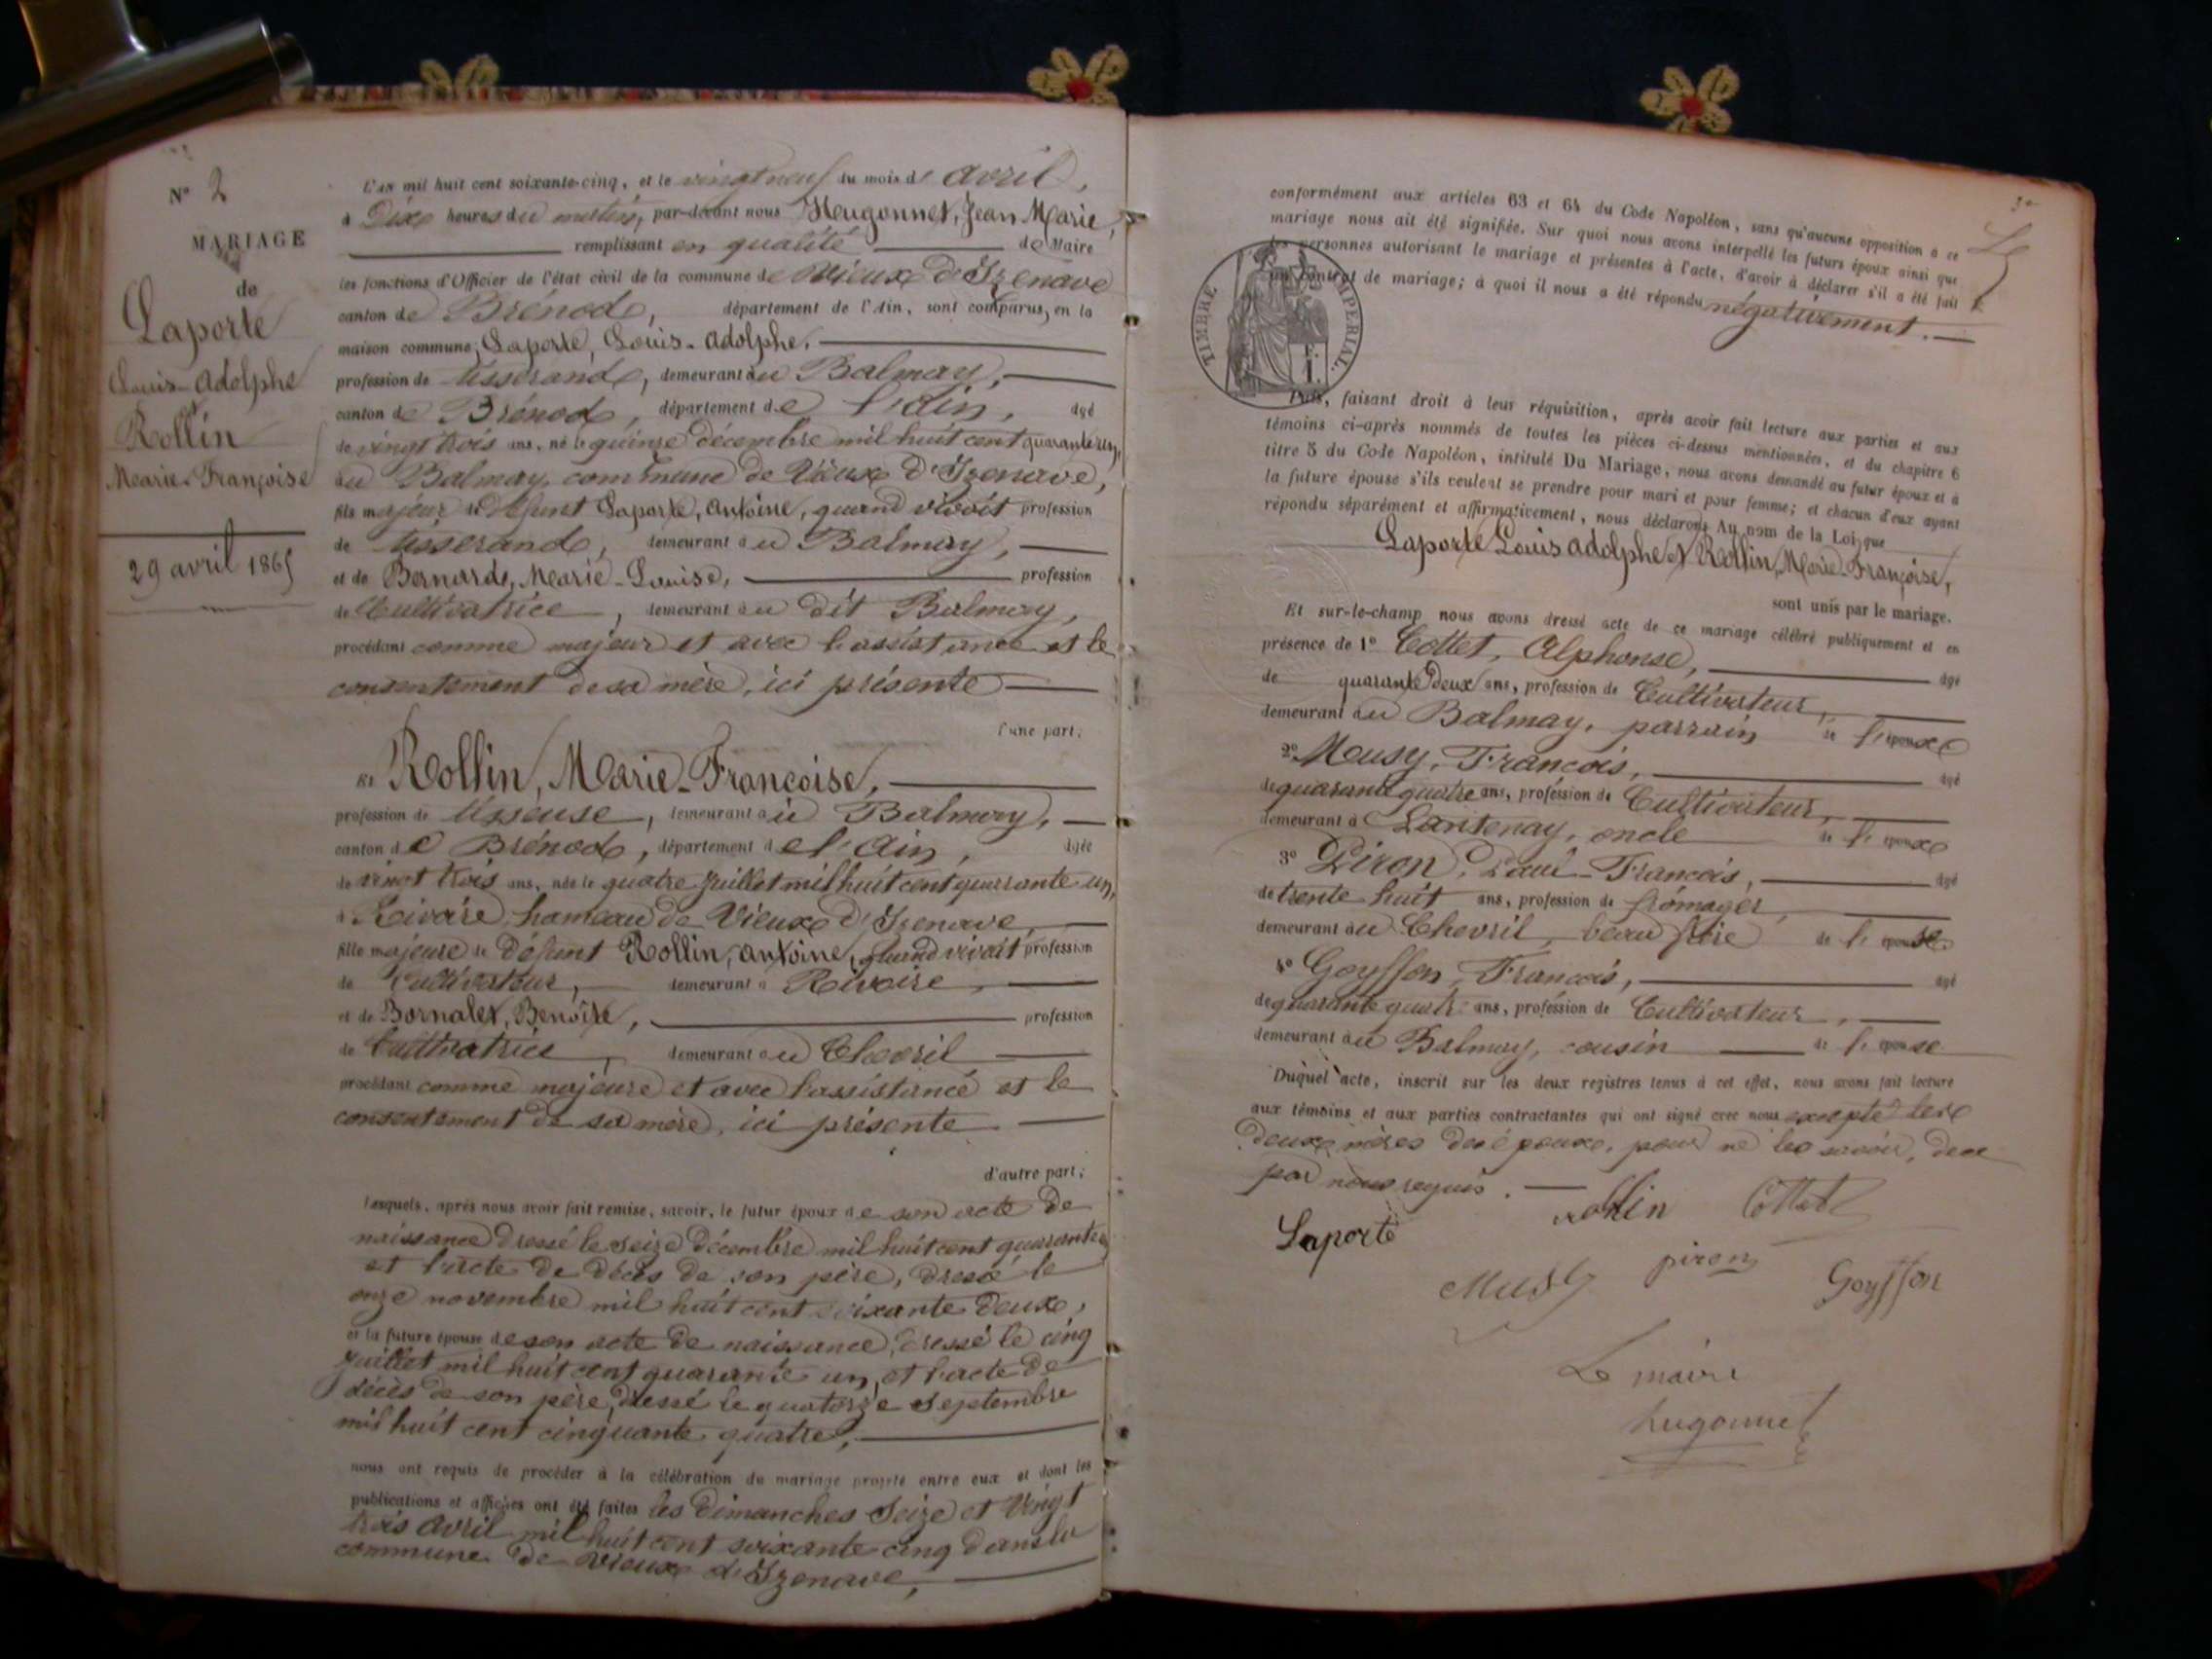 N° 2
MARIAGE
de
Laporte
Louis-Adolphe
et
Rollin
Marie-Françoise
29 avril 1865
L'an mil huit cent soixante-cinq, et le vingt neuf du mois d' avril,
à Dix heures du matin, par-devant nous Heugonnet, Jean Marie,
remplissant en qualité de Maire
les fonctions d'Officier de l'état civil de la commune de Vieux d'Izenave
canton de Brénod, département de l'Ain, sont comparus, en la
maison commune, Laporte, Louis-Adolphe,
profession de tisserand, demeurant au Balmay,
canton de Brénod, département de l'Ain, âgé
de vingt trois ans, né le quinze décembre mil huit cent quarante un,
au Balmay, commune de Vieux d'Izenave,
fils majeur de défunt Laporte, Antoine, quand vivait profession
de tisserand, demeurant au Balmay,
et de Bernard, Marie-Louise, profession
de Cultivatrice, demeurant au dit Balmay,
procédant comme majeur et avec l'assistance et le
consentement de sa mère, ici présente
l'une part;
Et Rollin, Marie-Françoise,
profession de tisseuse, demeurant au Balmay,
canton de Brénod, département de l'Ain, âgée
de vingt trois ans, née le quatre juillet mil huit cent quarante un,
à Rivoire, hameau de Vieux d'Izenave
fille majeure de défunt Rollin, Antoine, quand vivait profession
de Cultivateur, demeurant à Rivoire,
et de Bornalet, Benoîte, profession
de Cultivatrice, demeurant au Chevril
procédant comme majeure et avec l'assistance et le
consentement de sa mère, ici présente
d'autre part;
Lesquels, après nous avoir fait remise, savoir, le futur époux de son acte de
naissance dressé le seize décembre mil huit cent quarante
et l'acte de décès de son père, dressé le
onze novembre mil huit cent soixante deux,
et la future épouse de son acte de naissance, dressé le cinq
juillet mil huit cent quarante un, et l'acte de
décès de son père, dressé le quatorze septembre
mil huit cent cinquante quatre,
nous ont requis de procéder à la célébration du mariage projeté entre eux et dont les
publications et affiches ont été faites les Dimanches Seize et Vingt
trois avril mil huit cent soixante cinq dans la
commune de Vieux d'Izenave,
conformément aux articles 63 et 64 du Code Napoléon, sans qu'aucune opposition à ce
mariage nous ait été signifiée. Sur quoi nous avons interpellé les futurs époux ainsi que
les personnes autorisant le mariage et présentes à l'acte, d'avoir à déclarer s'il a été fait
un contrat de mariage; à quoi il nous a été répondu négativement.
TIMBRE IMPÉRIAL.
Puis, faisant droit à leur réquisition, après avoir fait lecture aux parties et aux
témoins ci-après nommés de toutes les pièces ci-dessus mentionnées, et du chapitre 6
titre 5 du Code Napoléon, intitulé Du Mariage, nous avons demandé au futur époux et à
la future épouse s'ils veulent se prendre pour mari et pour femme; et chacun d'eux ayant
répondu séparément et affirmativement, nous déclarons Au nom de la Loi, que
Laporte Louis Adolphe et Rollin, Marie-Françoise,
sont unis par le mariage.
Et sur-le-champ nous avons dressé acte de ce mariage célébré publiquement et en
présence de 1° Cottet, Alphonse, âgé
de quarante deux ans, profession de Cultivateur,
demeurant au Balmay, parrain de l'époux
2° Meusy, François, âgé
de quarante quatre ans, profession de Cultivateur,
demeurant à Lantenay, oncle de l'époux
3° Piron, Paul-François, âgé
de trente huit ans, profession de fromager
demeurant au Chevril, beau frère de l'épouse
4° Goyffon, François, âgé
de quarante quatre ans, profession de Cultivateur,
demeurant au Balmay, cousin de l'épouse
Duquel acte, inscrit sur les deux registres tenus à cet effet, nous avons fait lecture
aux témoins et aux parties contractantes qui ont signé avec nous excepté les
deux mères des époux, pour ne les savoir, de ce
par nous requis.
Rollin Cottet
Laporte
Musy piron Goyffon
Le maire
hugonnet